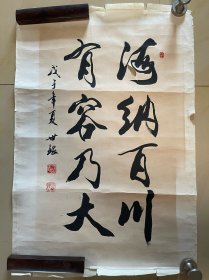 海纳百川
有容乃大
戊子年夏 世銘